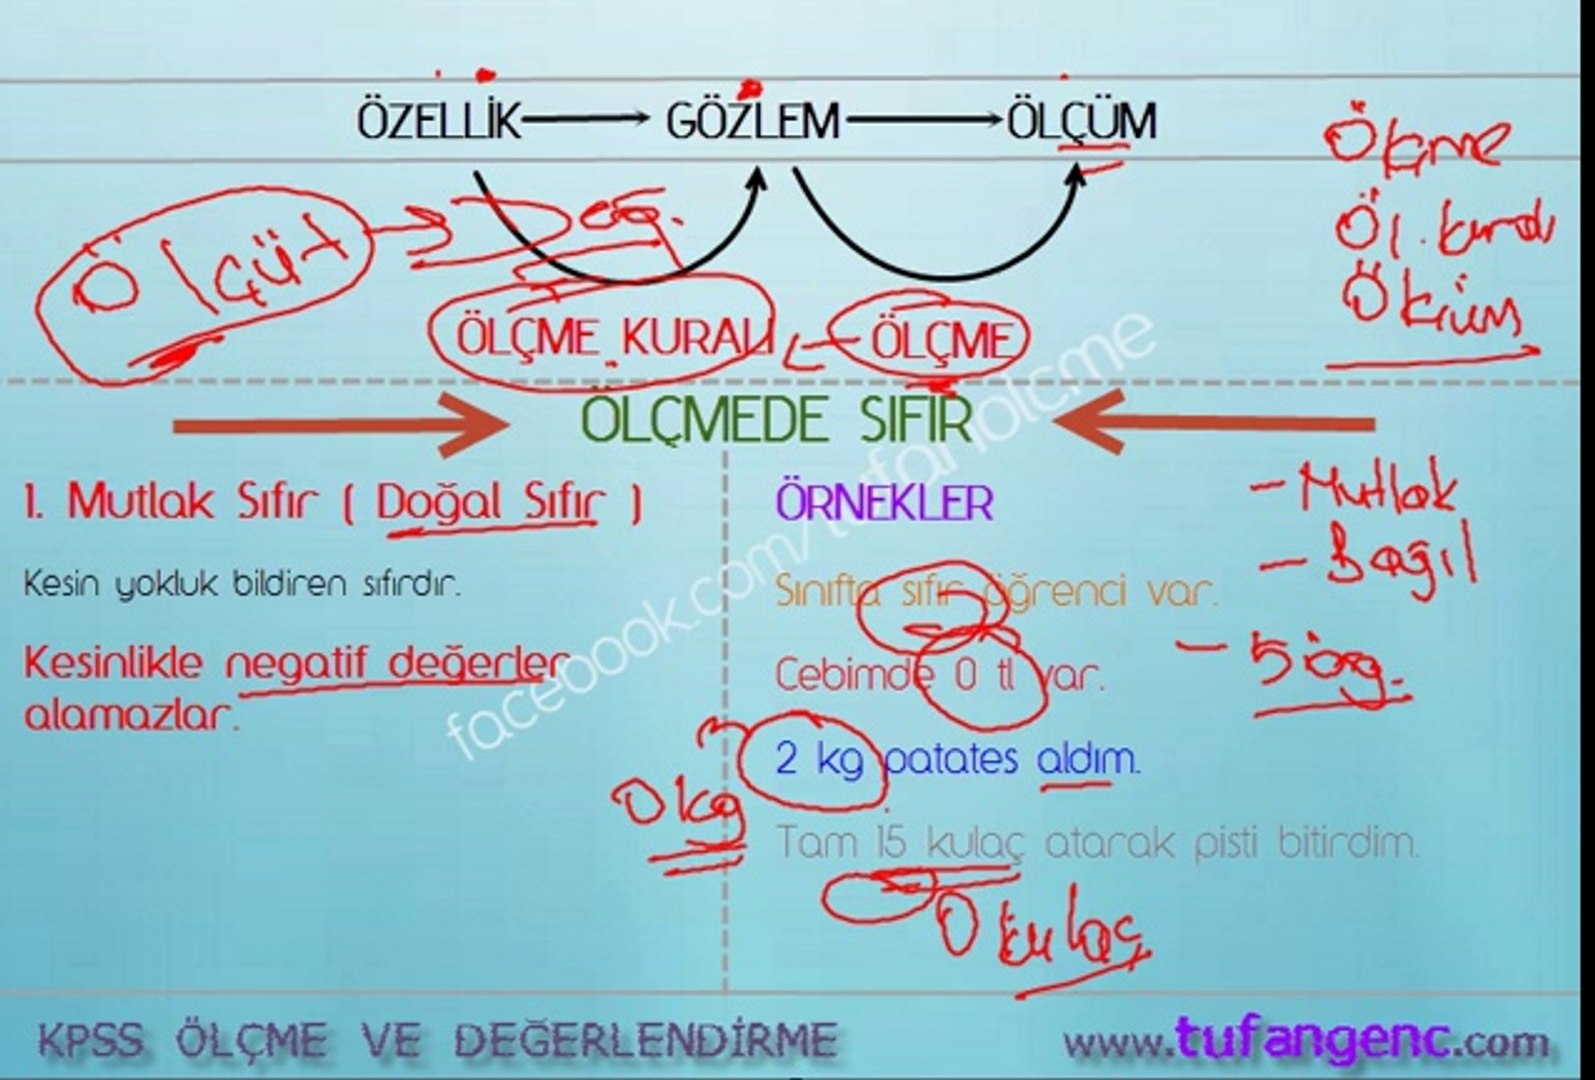 ÖZELLİK GÖZLEM ÖLÇÜM
Ölçme
Öl. kuralı
Ölçüm
Ölçüt Değ.
ÖLÇME KURALI ÖLÇME
ÖLÇMEDE SIFIR
1. Mutlak Sıfır ( Doğal Sıfır )
Kesin yokluk bildiren sıfırdır.
Kesinlikle negatif değerler
alamazlar.
ÖRNEKLER
- Mutlak
- Bağıl
Sınıfta sıfır öğrenci var.
- 5 öğ.
Cebimde 0 tl var.
2 kg patates aldım.
0 kg
Tam 15 kulaç atarak pisti bitirdim.
0 kulaç
facebook.com/tufanolcme
KPSS ÖLÇME VE DEĞERLENDİRME
www.tufangenc.com